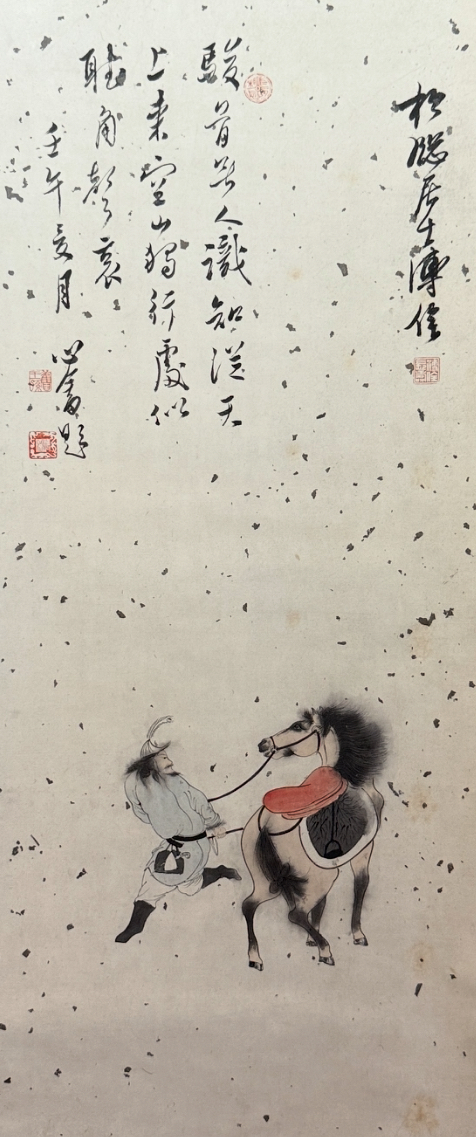 松牕居士溥佺
駿骨無人識知從天
上來空山獨行處似
聽角聲哀
壬午夏月
心畬題